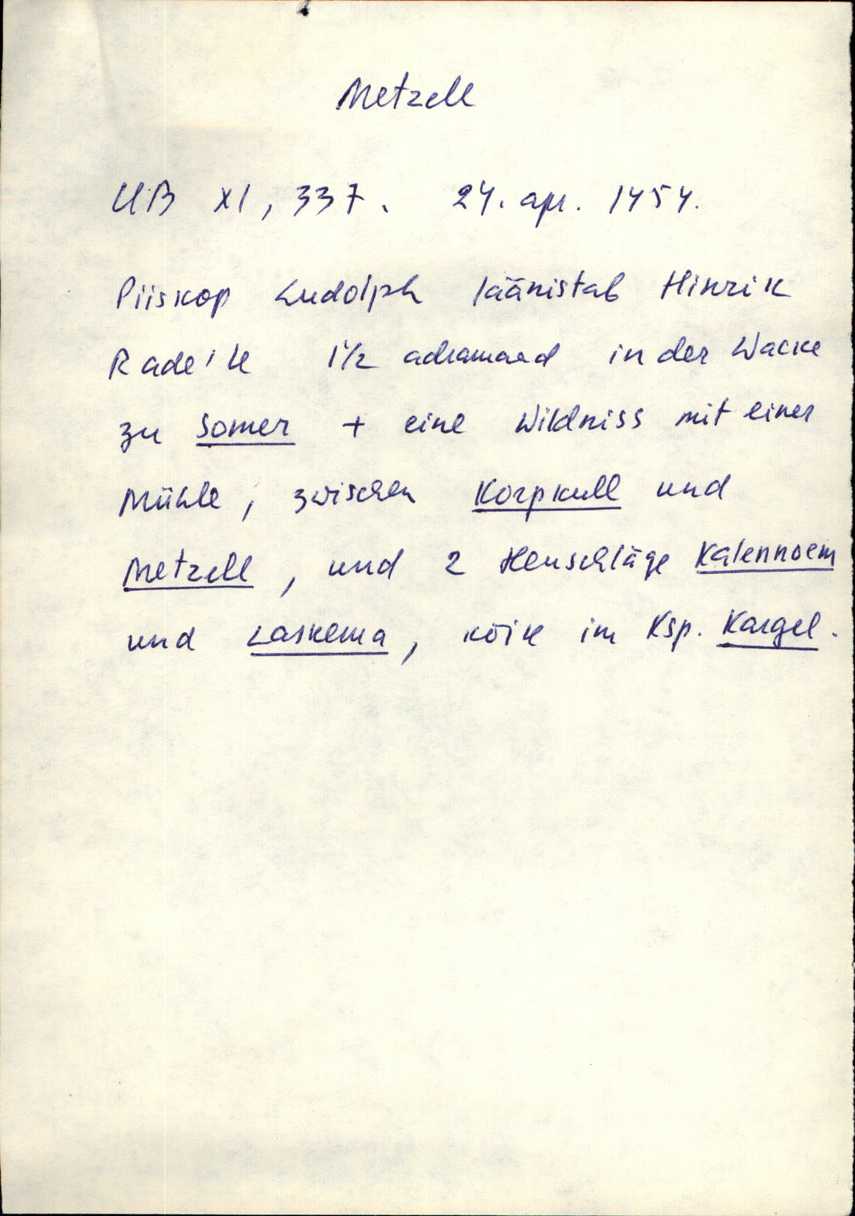 Metzell
UB XI, 337. 24. apr. 1454.
Piiskop Ludolph läänistab Hinrik
Rade'le 1 1/2 adramaad in der Wacke
zu Somer + eine Wildniss mit einer
Mühle, zwischen Korpkull und
Metzell, und 2 Heuschläge Kalennoem
und Laskema, kõik im Ksp. Kargel.